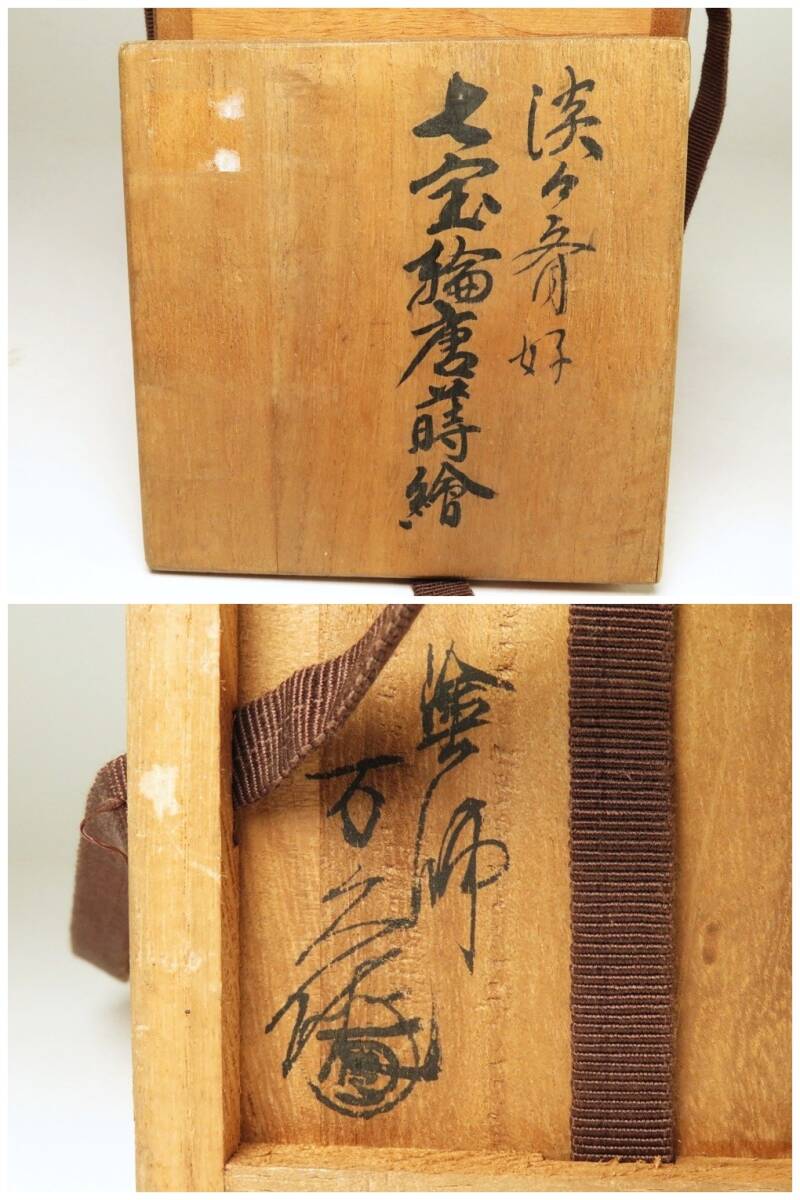 淡々斎好
七宝輪唐蒔繪
塗師
万久